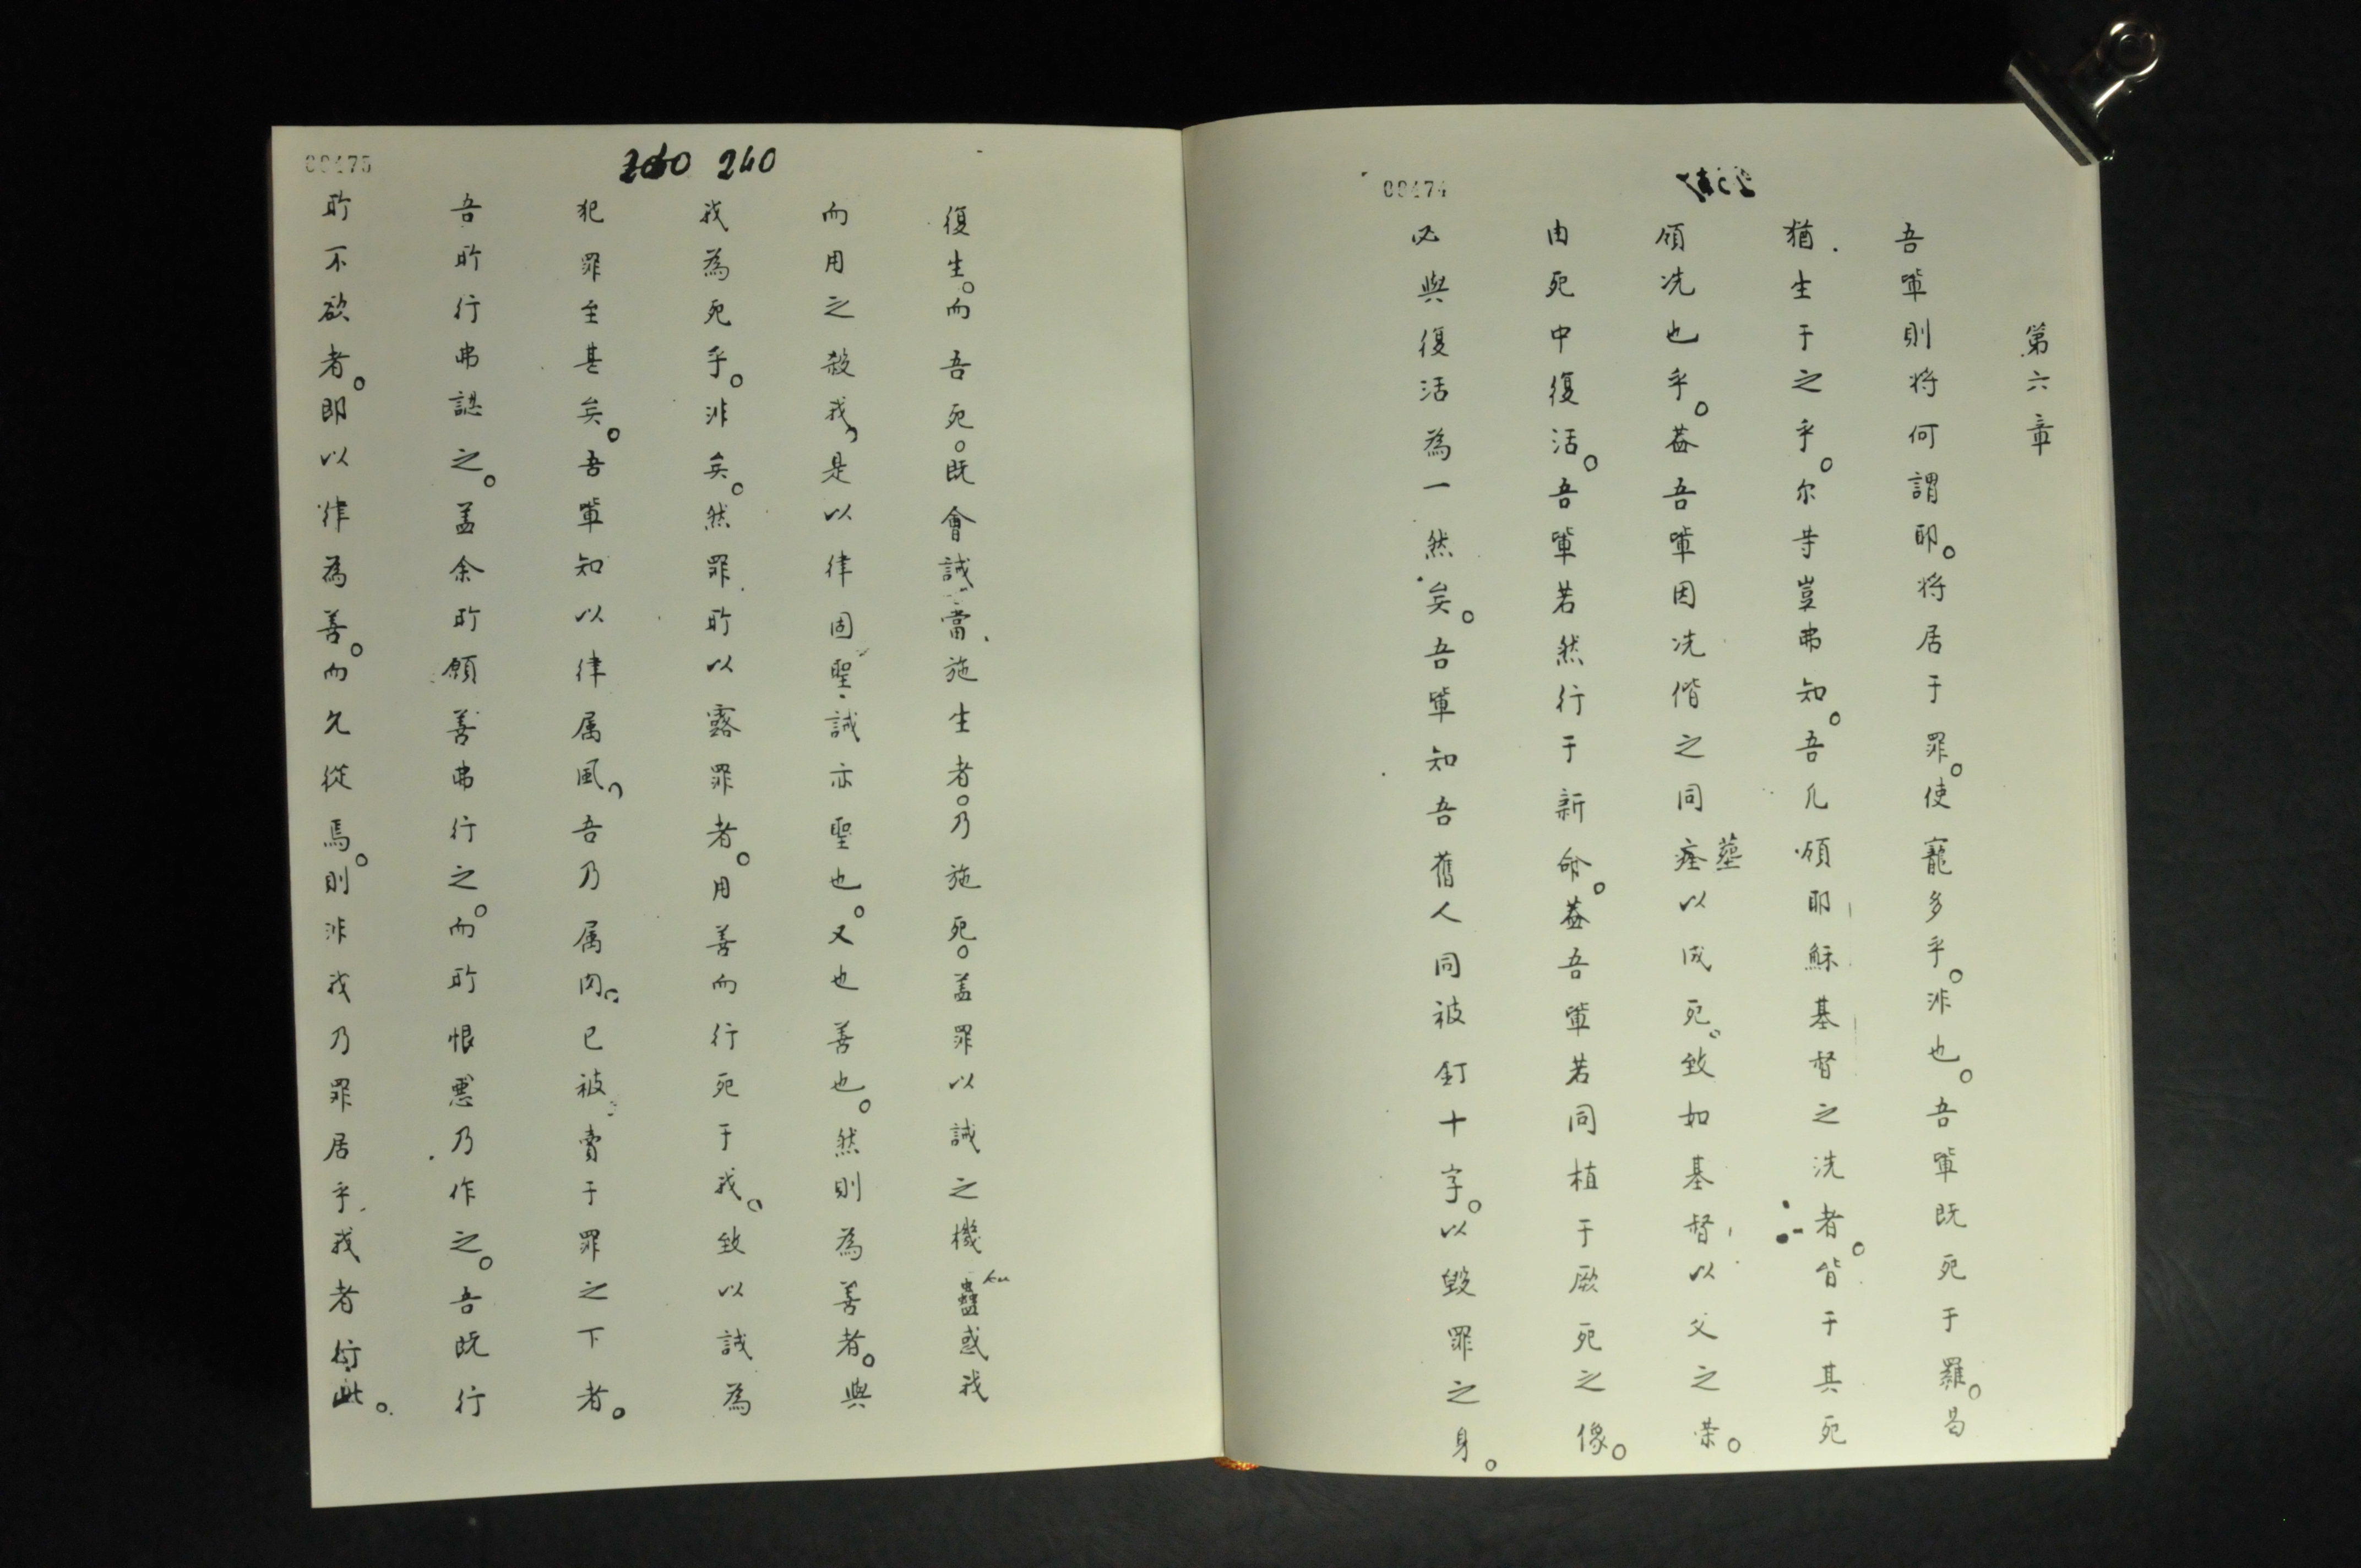 00474
第六章
吾軰則将何謂耶。将居于罪。使寵多乎。非也。吾軰既死于羅。曷
猶生于之乎。尔䓁豈弗知。吾凡領耶穌基督之洗者。皆于其死
領洗也乎。葢吾軰因洗偕之同瘞以成死。致如基督以父之荣。
塟
由死中復活。吾軰若然行于新命。葢吾軰若同植于厥死之像。
必與復活為一然矣。吾軰知吾舊人同被釘十字。以毀罪之身。
00475
240
復生。而吾死。既會誡當施生者。乃施死。盖罪以誡之機蠱惑我
ku
而用之殺我，是以律固聖誡亦聖也。又也善也。然則為善者。與
我為死乎。非矣。然罪所以露罪者。用善而行死于我。致以誡為
犯罪至甚矣。吾軰知以律属風，吾乃属肉。已被賣于罪之下者。
吾所行弗諰之。盖余所願善弗行之。而所恨悪乃作之。吾既行
所不欲者。即以律為善。而允從焉。則非我乃罪居乎我者行此。